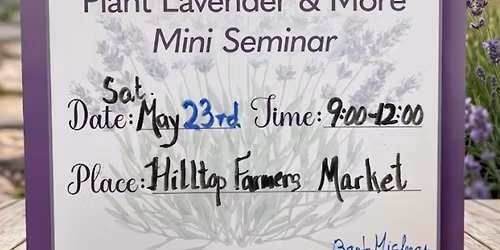 Plant Lavender & More
Mini Seminar
Sat.
Date: May 23rd Time: 9:00-12:00
Place: Hilltop Farmers Market